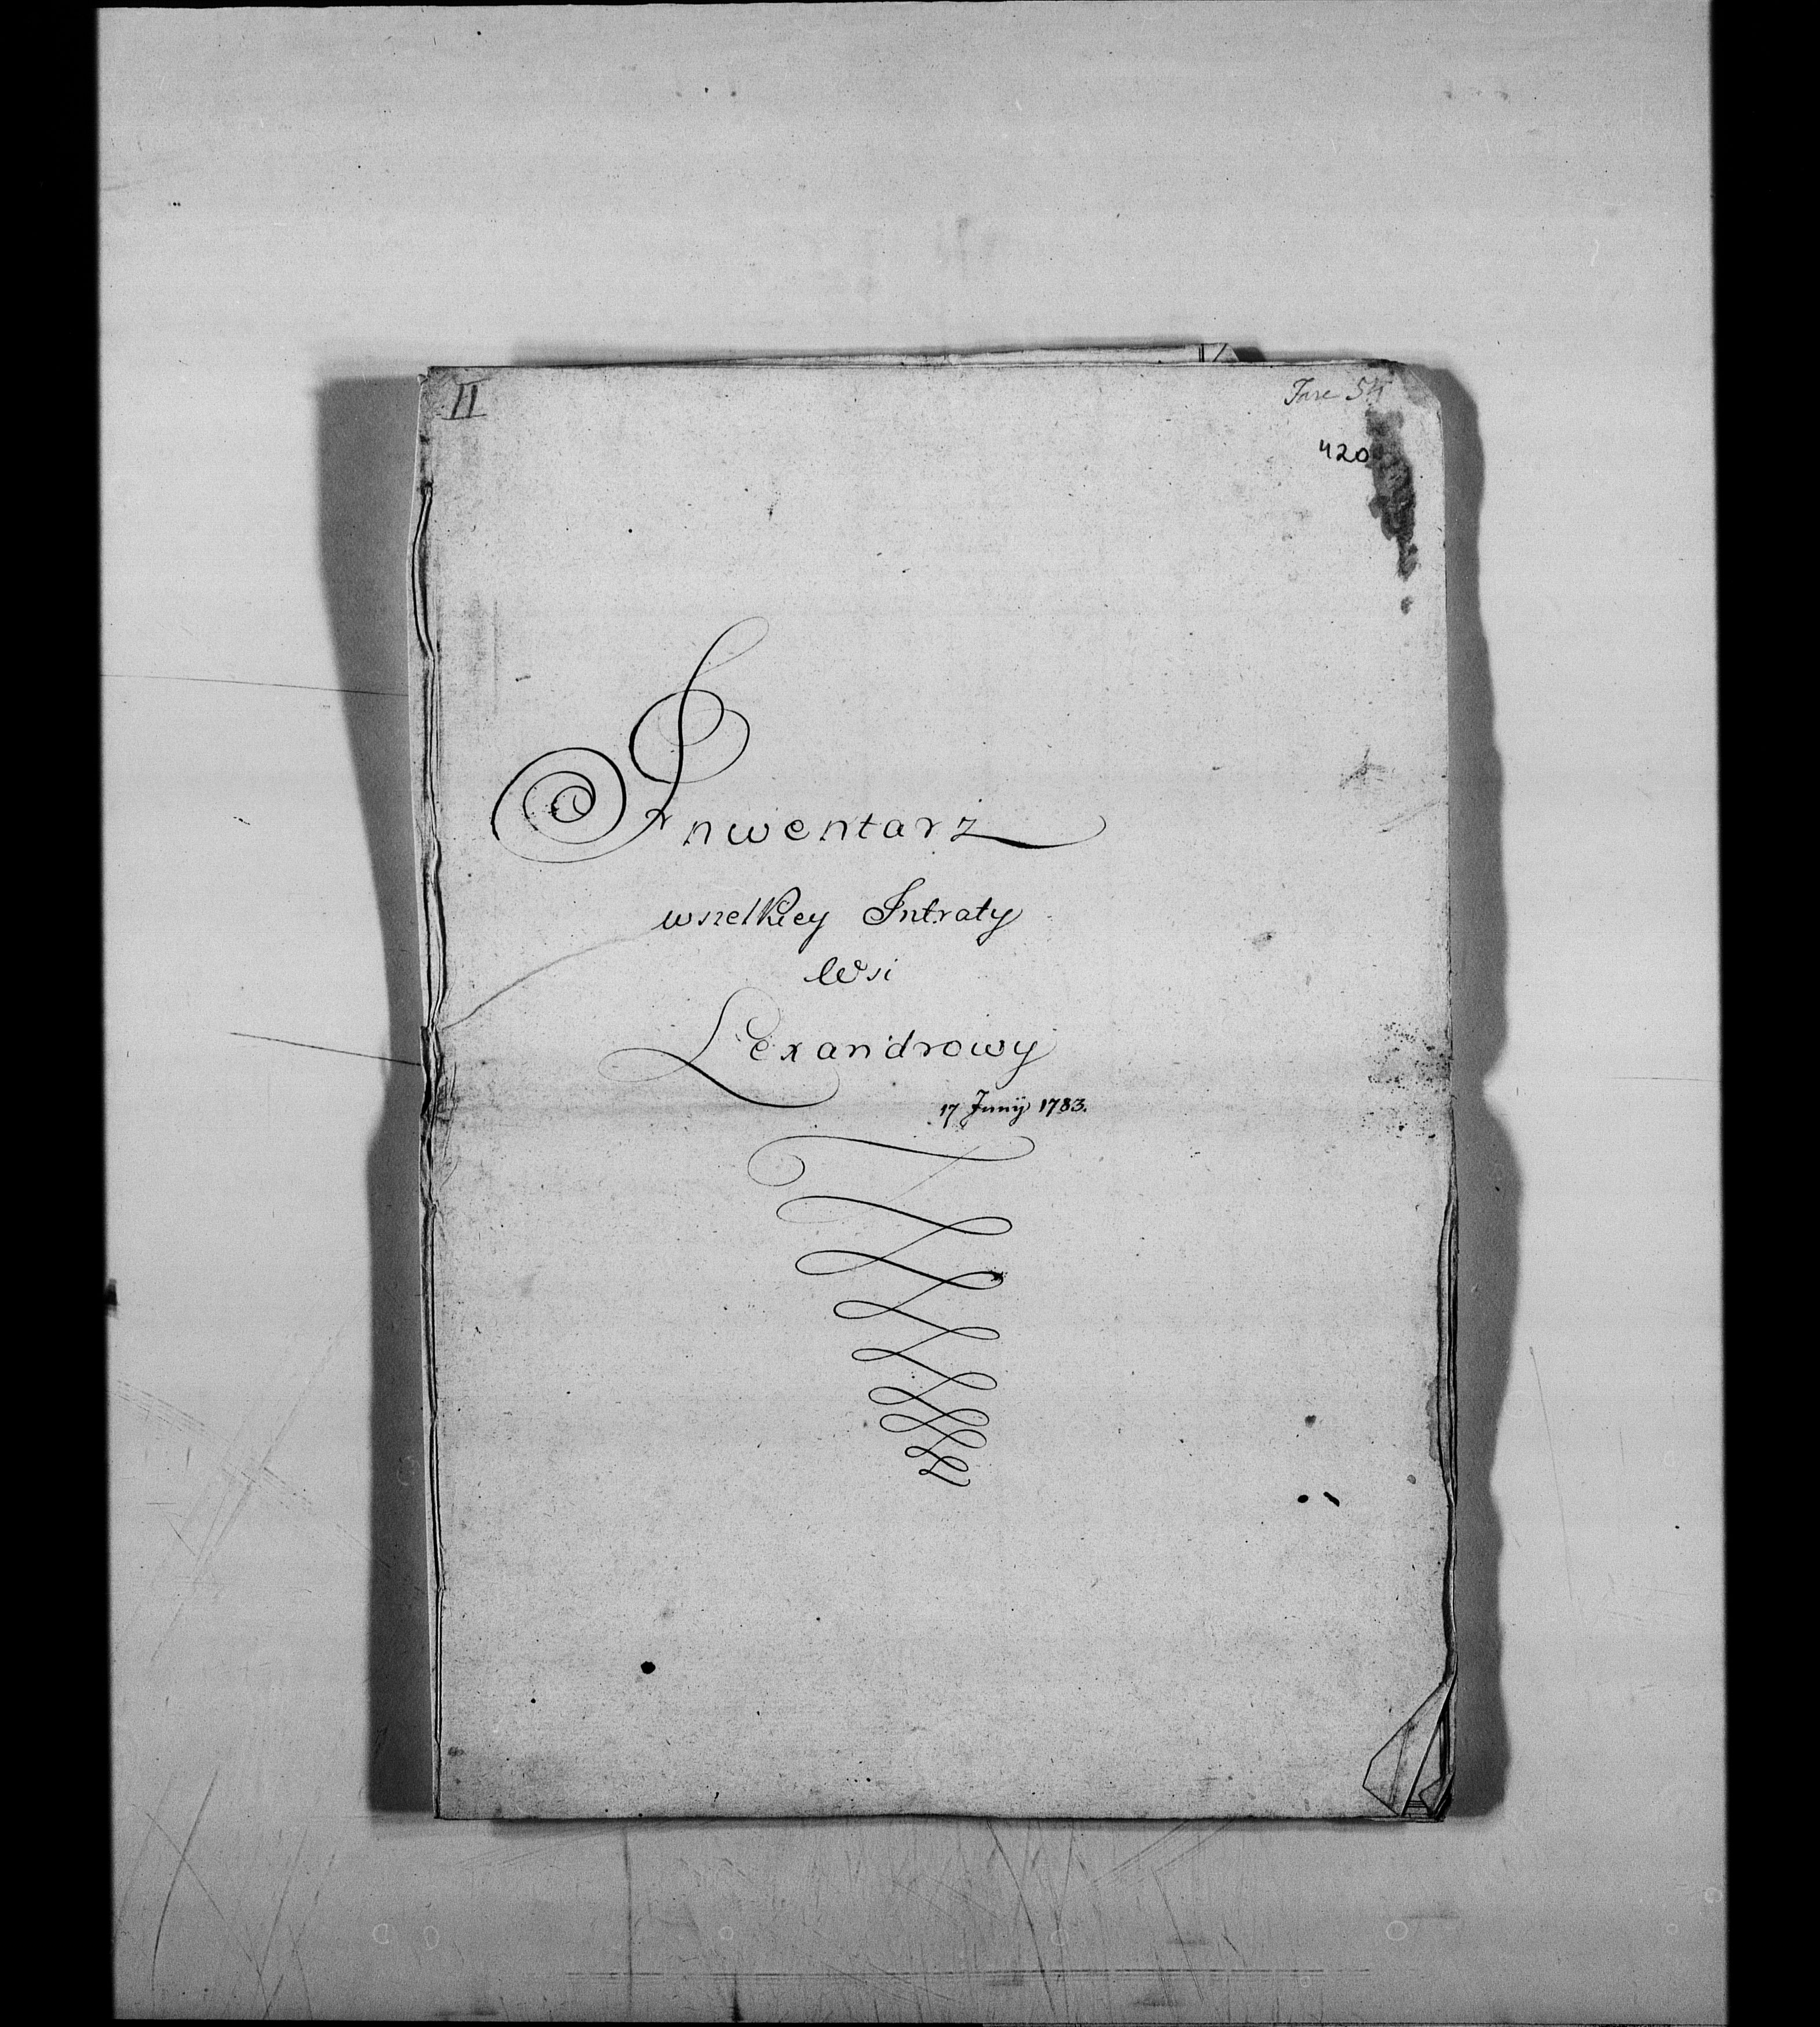 II
420
Inwentarz
wszelkiey Intraty
Wsi
Lexandrowy
17 Junij 1783.